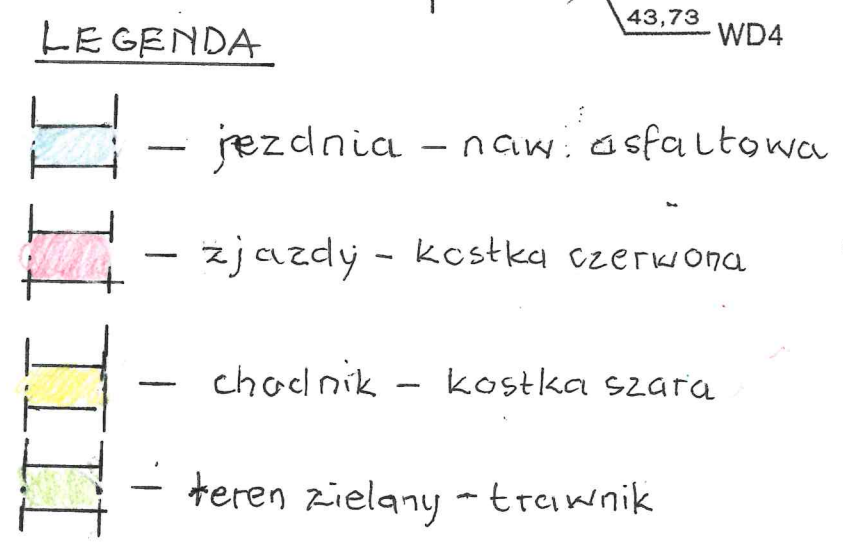 43,73 WD4
LEGENDA
— jezdnia – naw. asfaltowa
— zjazdy – kostka czerwona
— chodnik – kostka szara
— teren zielany – trawnik